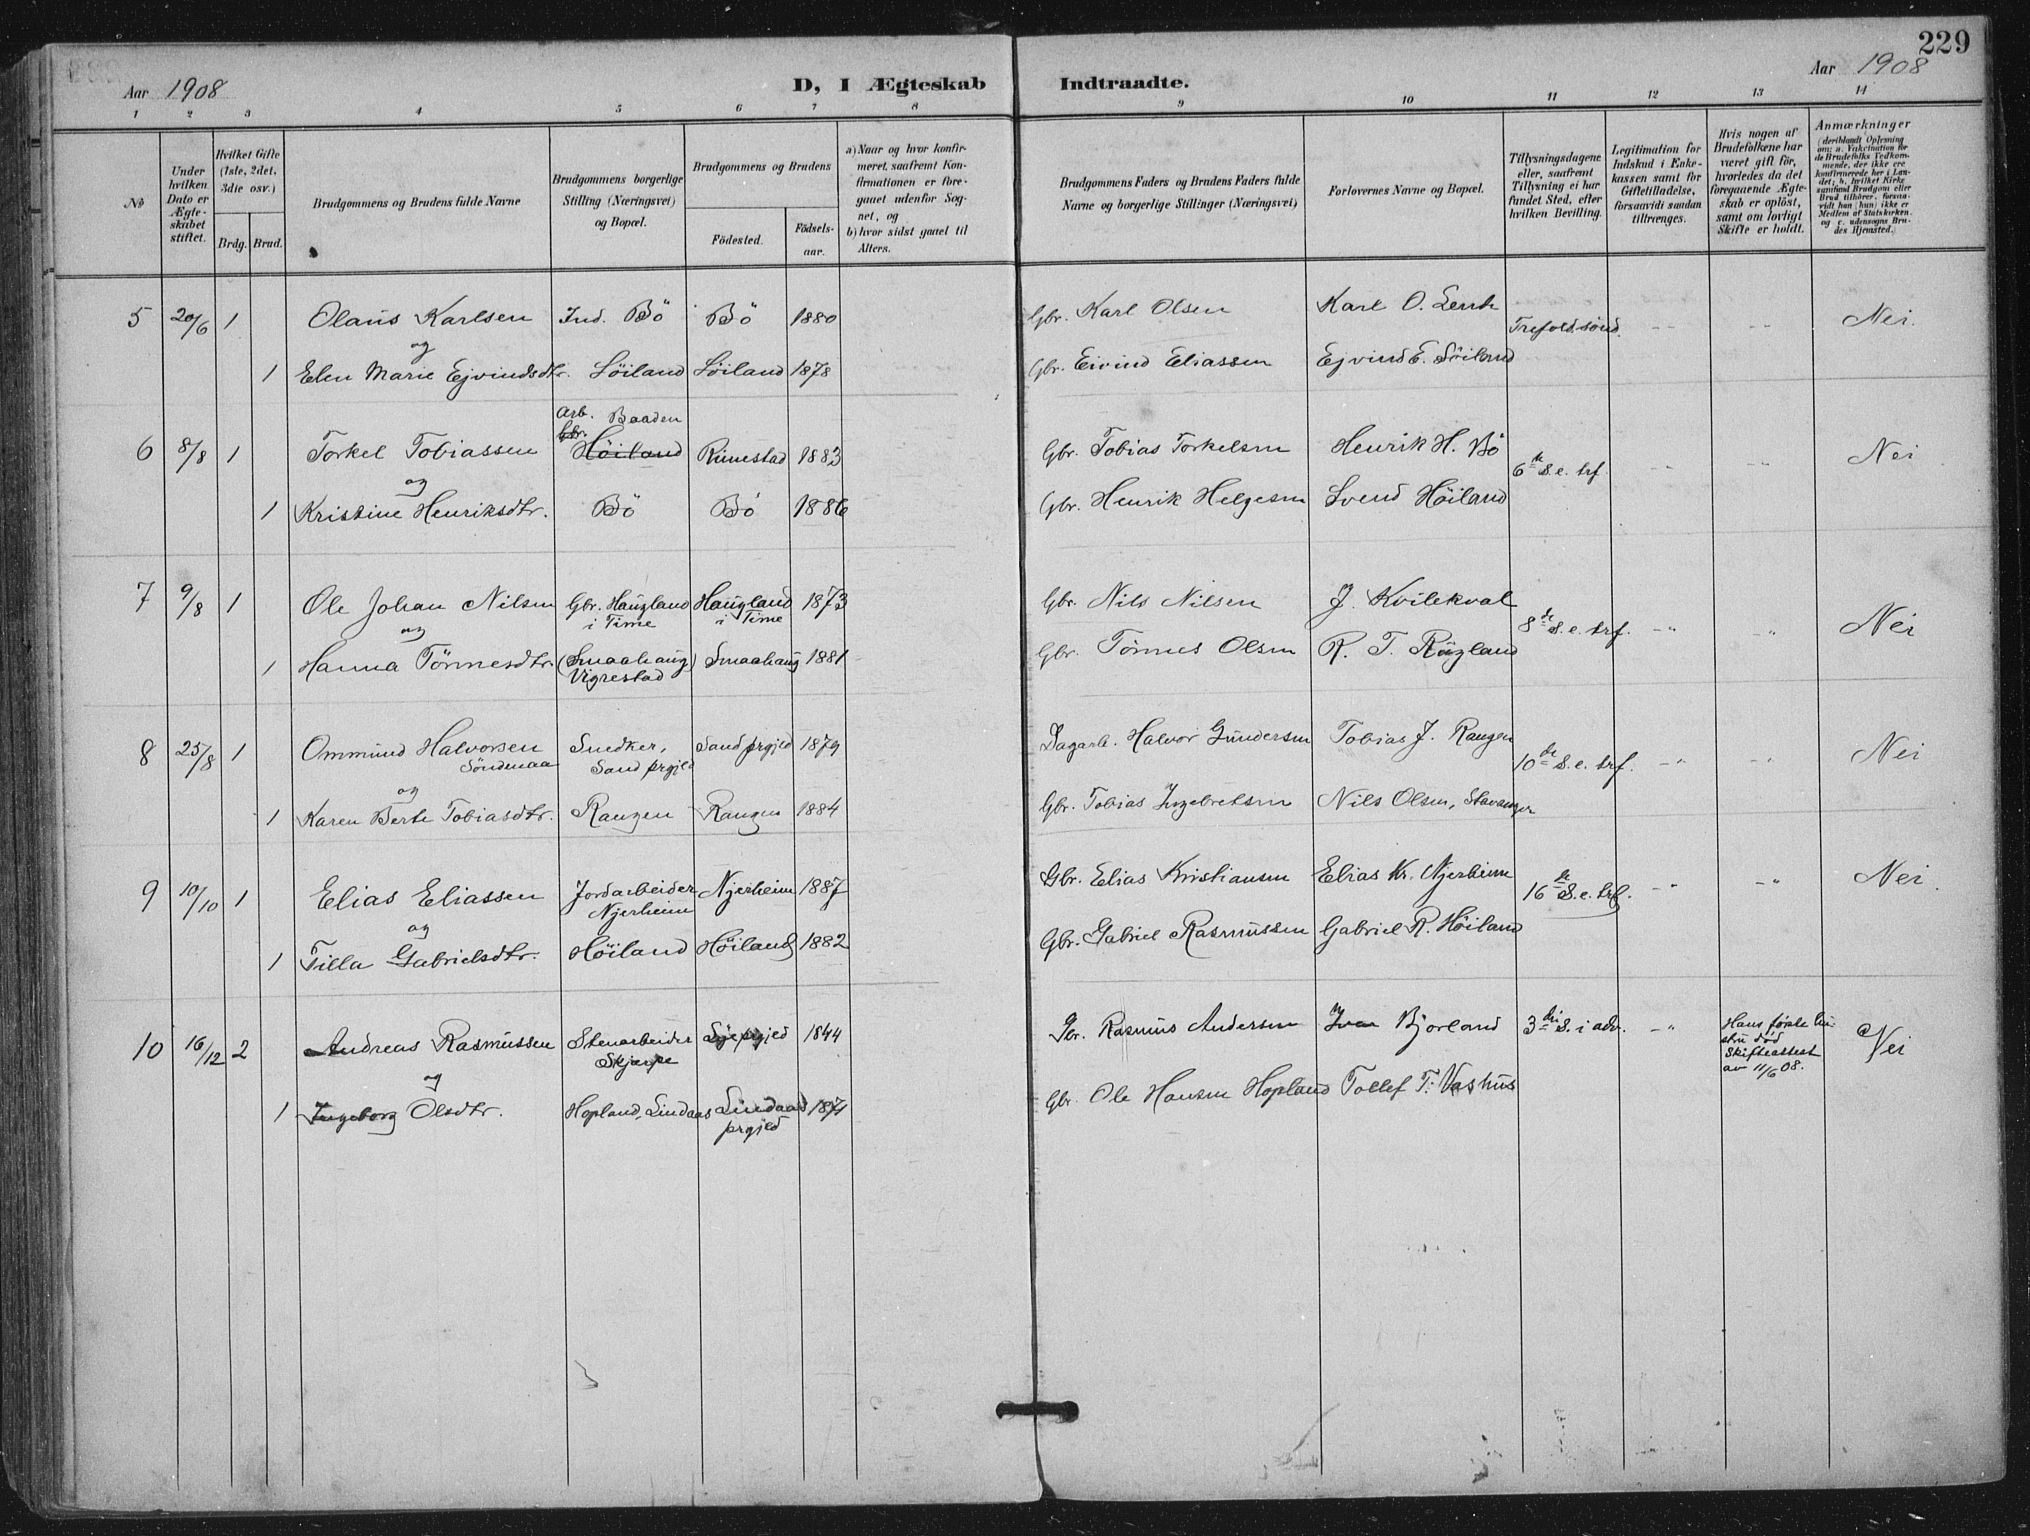 229
Aar 1908
D, I Ægteskab Indtraadte.
Aar 1908
1 2 3 4 5 6 7 8 9 10 11 12 13 14
No
Under hvilken Dato er Ægteskabet stiftet.
Hvilket Gifte (1ste, 2det, 3die osv.)
Brdg. Brud.
Brudgommens og Brudens fulde Navne
Brudgommens borgerlige Stilling (Næringsvei) og Bopæl.
Brudgommens og Brudens
Födested. Födsels-aar.
a) Naar og hvor konfirmeret, saafremt Konfirmationen er foregaaet udenfor Sognet, og
b) hvor sidst gaaet til Alters.
Brudgommens Faders og Brudens Faders fulde Navne og borgerlige Stillinger (Næringsvei)
Forlovernes Navne og Bopæl.
Tillysningsdagene eller, saafremt Tillysning ei har fundet Sted, efter hvilken Bevilling.
Legitimation for Indskud i Enkekassen samt for Giftetilladelse, forsaavidt saadan tiltrænges.
Hvis nogen af Brudefolkene har været gift för, hvorledes da det foregaaende Ægteskab er oplöst, samt om lovligt Skifte er holdt.
Anmærkninger (deriblandt Oplysning om: a. Vakcination for de Brudefolks Vedkommende, der ikke ere konfirmerede her i Landet; b. hvilket Kirkesamfund Brudgom eller Brud tilhörer, forsaavidt han (hun) ikke er Medlem af Statskirken, og c. udensogns Brudes Hjemsted.)
5 20/6 1 Olaus Karlsen Ind. Bö Bö 1880 Gbr. Karl Olsen Karl O. Trefold. sönd. -"- -"- Nei.
og
1 Elen Marie Ejvindsdtr. Löiland Löiland 1878 Gbr. Eivind Eliassen Ejvind E. Löiland
Arb. Baaden
6 8/8 1 Torkel Tobiassen Gbr. Höiland Rimestad 1883 Gbr. Tobias Torkelsen Henrik H. Bö 6te S. e. trf. -"- -"- Nei
og
1 Kristine Henriksdtr. Bö Bö 1886 Gbr. Henrik Helgesen Svend Höiland
7 9/8 1 Ole Johan Nilsen Gbr. Haugland i Time Haugland i Time 1873 Gbr. Nils Nilsen J. Kvilekval 8de S. e. trf. -"- -"- Nei
og
1 Hanna Törresdtr. (Smaahaug) Vigrestad Smaahaug 1881 Gbr. Törres Olsen R. T. Rugland
8 25/8 1 Ommund Halvorsen Söndenaa Snedker, Sand prgjld Sand prgjeld 1879 Dagarb. Halvor Gundersen Tobias J. Rangen 10de S. e. trf. -"- -"- Nei
og
1 Karen Berte Tobiasdtr. Rangen Rangen 1884 Gbr. Tobias Ingebretsen Nils Olsen, Stavanger
9 10/10 1 Elias Eliassen Jordarbeider Njerheim Njerheim 1887 Gbr. Elias Kristiansen Elias Kr. Njerheim 16de S. e. trf. -"- -"- Nei.
og
1 Tilla Gabrielsdtr. Höiland Höiland 1882 Gbr. Gabriel Rasmussen Gabriel R. Höiland
10 16/12 2 Andreas Rasmussen Stenarbeider Skjærpe prgjeld 1844 Gbr. Rasmus Andersen Bjorland 3die S. i adv. -"- Hans förste hustru död Skifteattest av 11/6 08. Nei
og
1 Ingeborg Olsdtr. Hopland, Lindaas Lindaas prgjeld 1874 Gbr. Ole Hansen Hopland Tollef T. Vashus